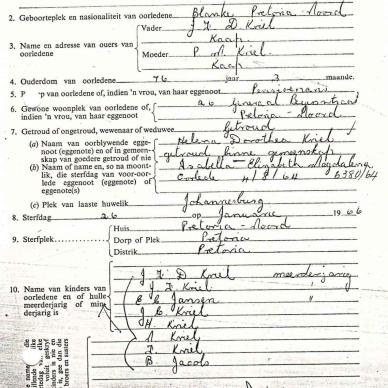 2. Geboorteplek en nasionaliteit van oorledene Blanke, Pretoria-Noord
Vader J F D Kriel
Kaap
3. Name en adresse van ouers van oorledene
Moeder P M Kriel
Kaap
4. Ouderdom van oorledene 76 jaar 3 maande.
van oorledene of, indien 'n vrou, van haar eggenoot Pensioenaris
6. Gewone woonplek van oorledene of, indien 'n vrou, van haar eggenoot 26 Generaal
Pretoria-Noord
7. Getroud of ongetroud, wewenaar of weduwee Getroud
(a) Naam van oorblywende eggenoot (eggenote) en of in gemeenskap van goedere getroud of nie
Helena Dorothea Kriel
getroud binne gemeenskap
(b) Naam of name en, so na moontlik, die sterfdag van vooroorlede eggenoot (eggenote) of eggenote(s)
Elizabeth Magdalena
4/8/64 6380/64
(c) Plek van laaste huwelik Johannesburg
8. Sterfdag 26 op Januarie 1966
Huis Pretoria-Noord
9. Sterfplek Dorp of Plek Pretoria
Distrik Pretoria
10. Name van kinders van oorledene en of hulle meerderjarig of minderjarig is
J F D Kriel meerderjarig
J F Kriel "
Jansen "
Kriel
H. Kriel
Kriel
Kriel
B Jacobs